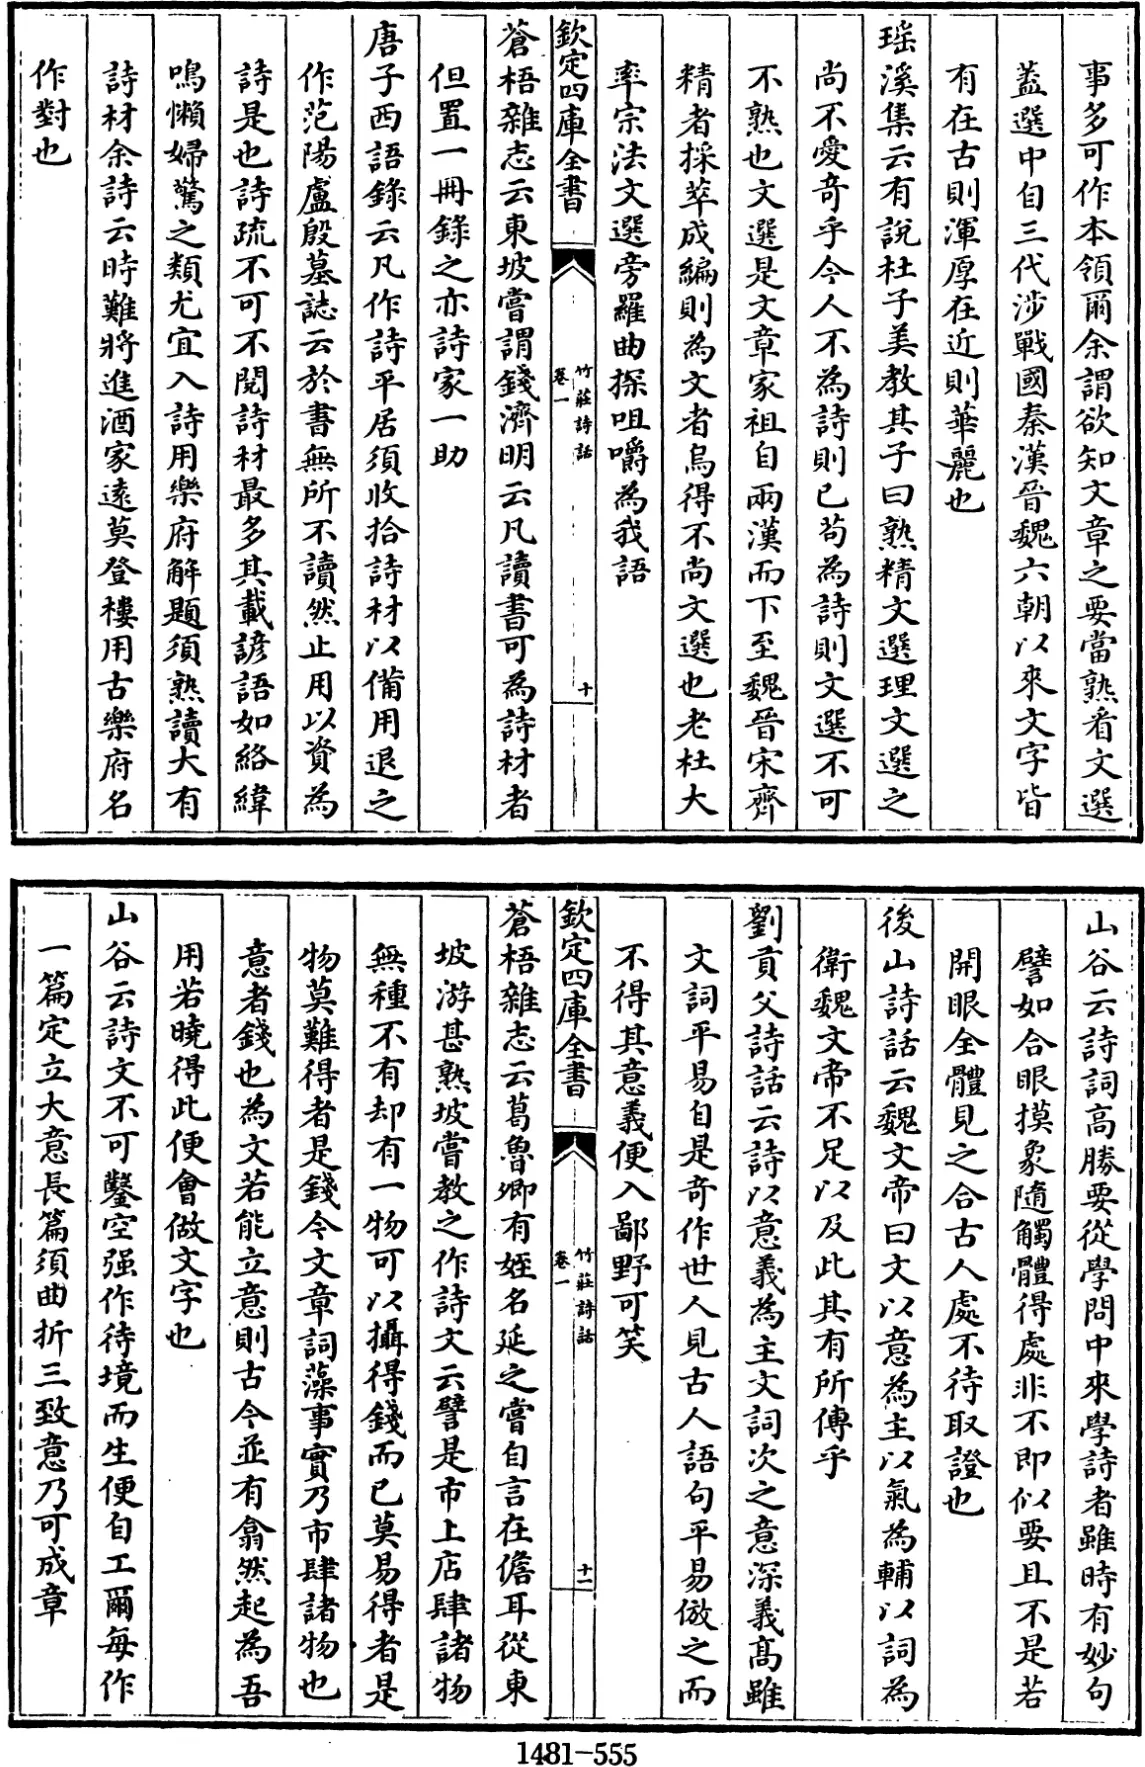 事多可作本領爾余謂欲知文章之要當熟看文選
蓋選中自三代涉戰國秦漢晉魏六朝以來文字皆
有在古則渾厚在近則華麗也
瑶溪集云有說杜子美教其子曰熟精文選理文選之
尚不愛奇乎今人不為詩則已苟為詩則文選不可
不熟也文選是文章家祖自兩漢而下至魏晉宋齊
精者採萃成編則為文者烏得不尚文選也老杜大
率宗法文選旁羅曲探咀嚼為我語
欽定四庫全書
竹莊詩話
卷一
十
蒼梧雜志云東坡嘗謂錢濟明云凡讀書可為詩材者
但置一冊錄之亦詩家一助
唐子西語錄云凡作詩平居須收拾詩材以備用退之
作范陽盧殷墓誌云於書無所不讀然止用以資為
詩是也詩疏不可不閱詩材最多其載諺語如絡緯
鳴懶婦驚之類尤宜入詩用樂府解題須熟讀大有
詩材余詩云時難將進酒家遠莫登樓用古樂府名
作對也
山谷云詩詞高勝要從學問中來學詩者雖時有妙句
譬如合眼摸象隨觸體得處非不即似要且不是若
開眼全體見之合古人處不待取證也
後山詩話云魏文帝曰文以意為主以氣為輔以詞為
衛魏文帝不足以及此其有所傳乎
劉貢父詩話云詩以意義為主文詞次之意深義髙雖
文詞平易自是奇作世人見古人語句平易倣之而
不得其意義便入鄙野可笑
欽定四庫全書
竹莊詩話
卷一
十一
蒼梧雜志云葛魯卿有姪名延之嘗自言在儋耳從東
坡游甚熟坡嘗教之作詩文云譬是市上店肆諸物
無種不有却有一物可以攝得錢而已莫易得者是
物莫難得者是錢今文章詞藻事實乃市肆諸物也
意者錢也為文若能立意則古今並有翕然起為吾
用若曉得此便會做文字也
山谷云詩文不可鑿空强作待境而生便自工爾每作
一篇定立大意長篇須曲折三致意乃可成章
1481-555